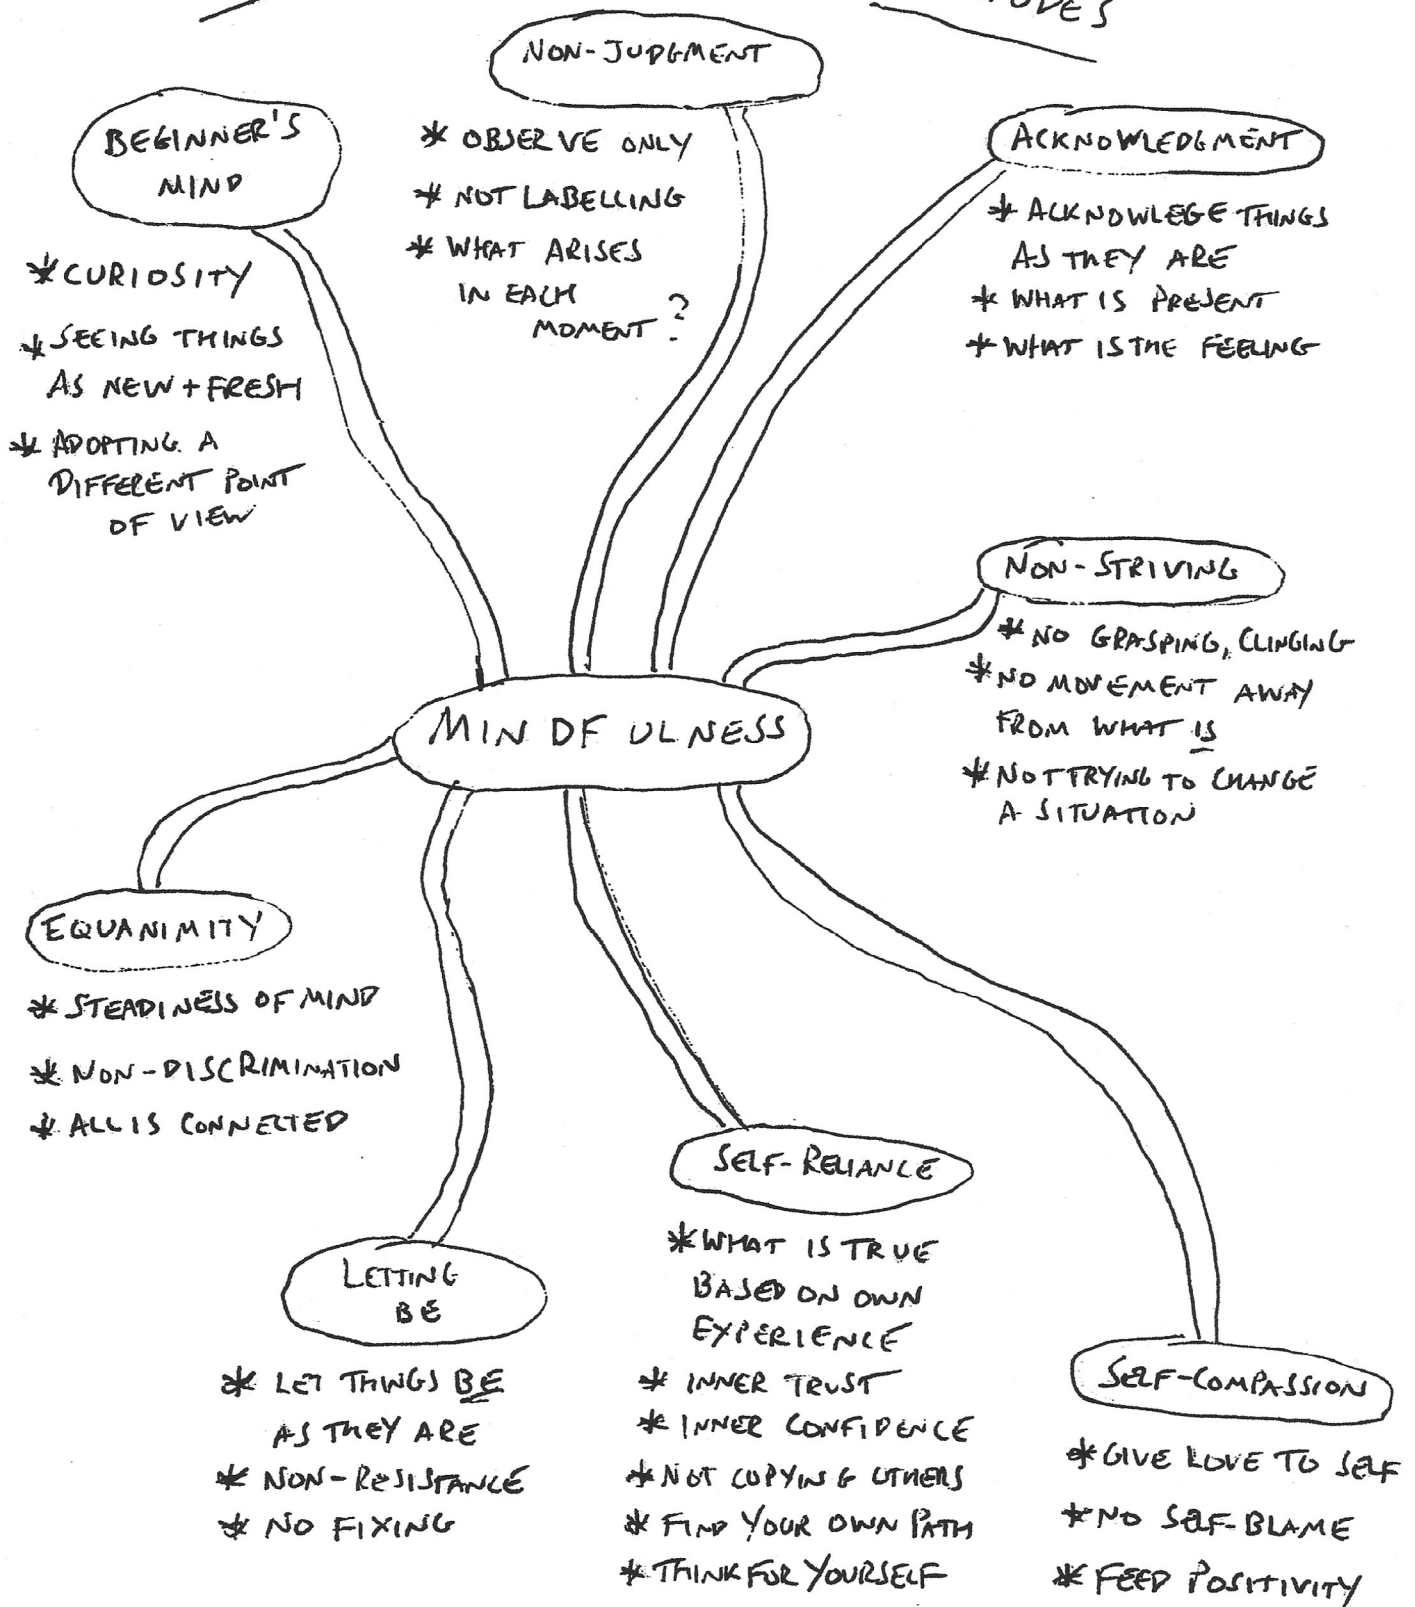 NON-JUDGMENT
* OBSERVE ONLY
* NOT LABELLING
* WHAT ARISES
IN EACH
MOMENT?
BEGINNER'S
MIND
* CURIOSITY
* SEEING THINGS
AS NEW + FRESH
* ADOPTING A
DIFFERENT POINT
OF VIEW
ACKNOWLEDGMENT
* ACKNOWLEGE THINGS
AS THEY ARE
* WHAT IS PRESENT
* WHAT IS THE FEELING
NON-STRIVING
* NO GRASPING, CLINGING
* NO MOVEMENT AWAY
FROM WHAT IS
* NOT TRYING TO CHANGE
A SITUATION
MINDFULNESS
EQUANIMITY
* STEADINESS OF MIND
* NON-DISCRIMINATION
* ALL IS CONNECTED
LETTING
BE
* LET THINGS BE
AS THEY ARE
* NON-RESISTANCE
* NO FIXING
SELF-RELIANCE
* WHAT IS TRUE
BASED ON OWN
EXPERIENCE
* INNER TRUST
* INNER CONFIDENCE
* NOT COPYING OTHERS
* FIND YOUR OWN PATH
* THINK FOR YOURSELF
SELF-COMPASSION
* GIVE LOVE TO SELF
* NO SELF-BLAME
* FEED POSITIVITY